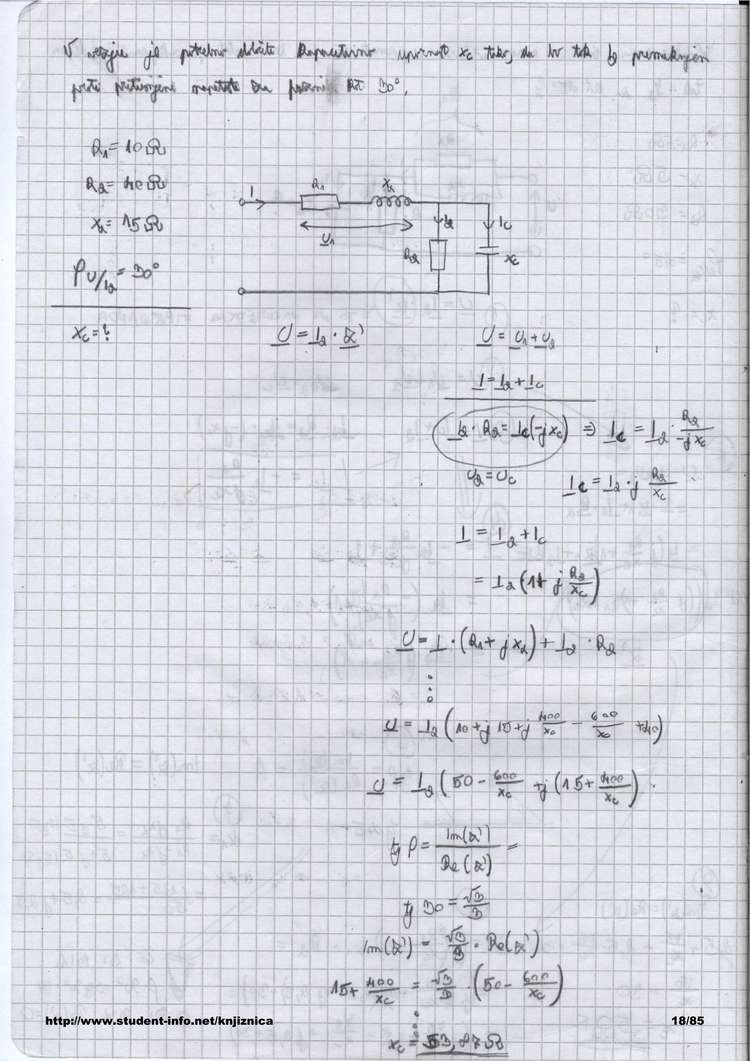 V vezju je potrebno določit kapacitivno upornost Xc tako, da bo tok I2 premaknjen
proti pritisnjeni napetosti za 30°.
R1 = 10Ω
R2 = 40Ω
X2 = 15Ω
φ U/I2 = 30°
Xc = ?
I R1 X2
U1 I2 Ic
R2 Xc
U = I2 · Z'
U = U1 + U2
I = I2 + Ic
I2 · R2 = Ic(-jXc) ⇒ Ic = I2 · R2/-jXc
U2 = Uc
Ic = I2 · j R2/Xc
I = I2 + Ic
= I2 (1 + j R2/Xc)
U = I · (R1 + jX2) + I2 · R2
⋮
U = I2 (10 + j 15 + j 400/Xc - 600/Xc + 40)
U = I2 (50 - 600/Xc + j (15 + 400/Xc)
tg φ = Im(Z')/Re(Z') =
tg 30 = √3/3
Im(Z') = √3/3 · Re(Z')
15 + 400/Xc = √3/3 · (50 - 600/Xc)
⋮
Xc = 53,87Ω
http://www.student-info.net/knjiznica 18/85